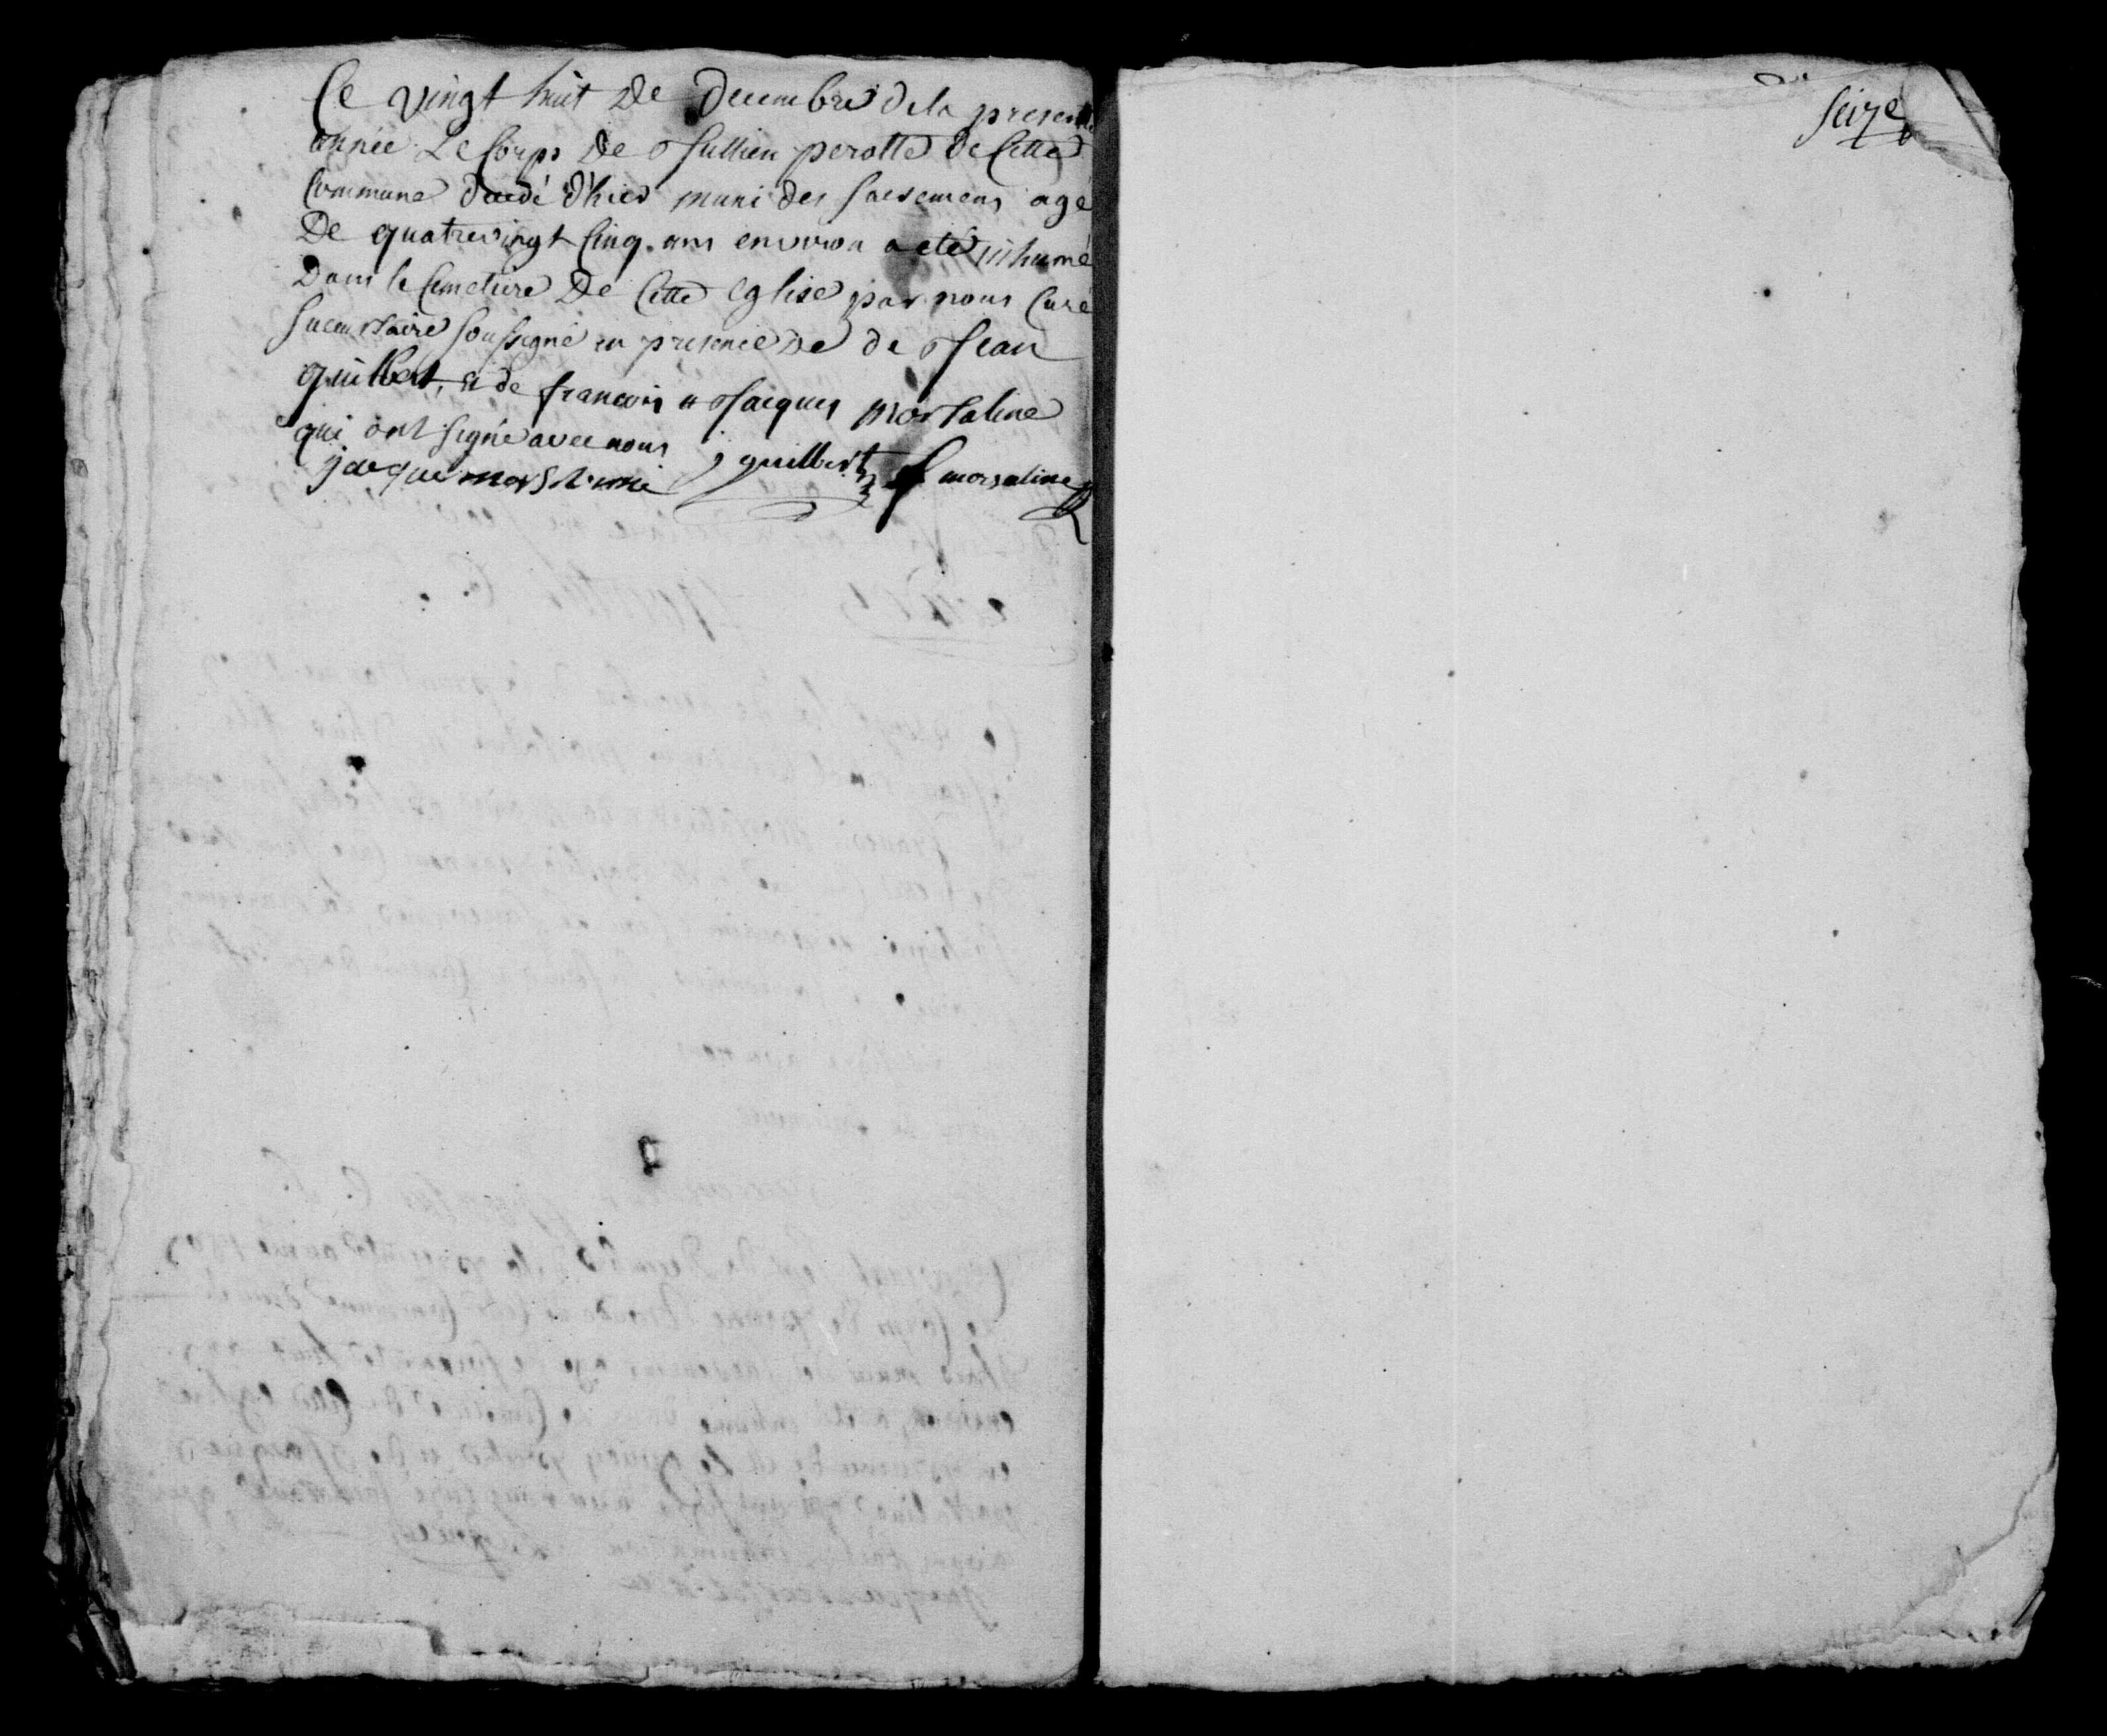 Ce vingt huit De Decembre dela presente
année Le Corps De Jullien perotte De Cette
Commune decedé d'hier muni des sacremens agé
De quatrevingt Cinq ans environ a eté inhumé
Dans le Cimetiere De Cette eglise par nous Curé
succursaire soussigné en presence De de Jean
guilbert, et de francois et Jacques morsaline
qui ont signé avec nous j guilbert f morsaline
jacque morsaline
seize